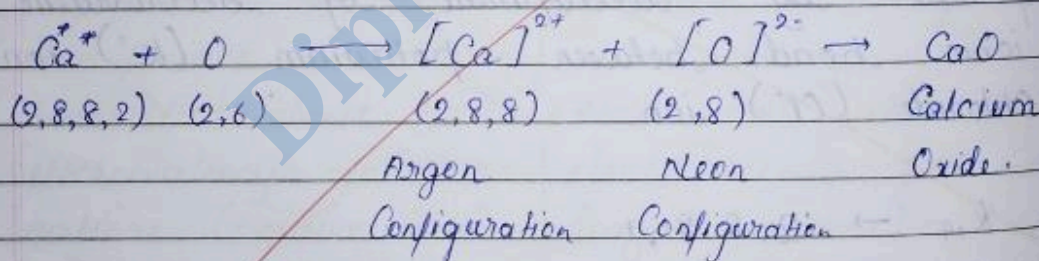 Ca** + O → [Ca]²⁺ + [O]²⁻ → CaO
(2,8,8,2) (2,6) (2,8,8) (2,8) Calcium
Argon Neon Oxide.
Configuration Configuration
Dipr